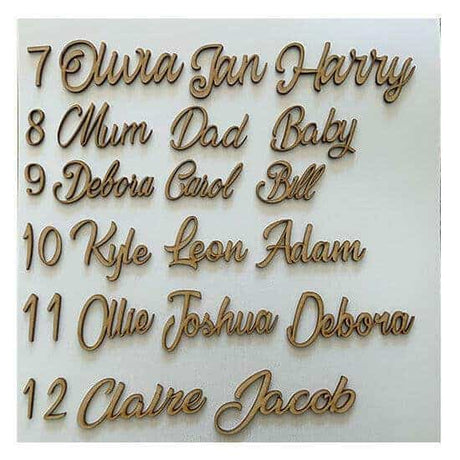 7 Olivia Jan Harry
8 Mum Dad Baby
9 Debora Carol Bill
10 Kyle Leon Adam
11 Ollie Joshua Debora
12 Claire Jacob